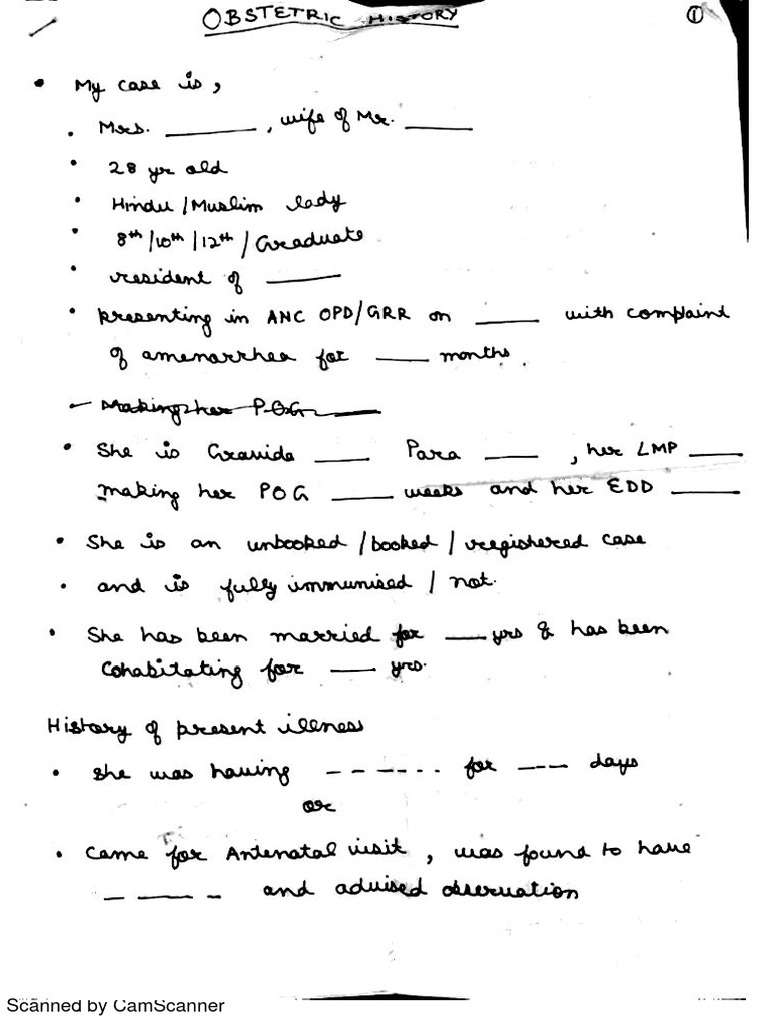 OBSTETRIC HISTORY ①
• My case is,
• Mrs. ________, wife of Mr. ______
• 28 yr old
• Hindu / Muslim lady
• 8th/10th/12th/Graduate
• resident of ______
• presenting in ANC OPD/GRR on _____ with complaint
of amenorrhea for ____ months.
- Making her POG ____
• She is Gravida ____ Para ____, her LMP ____
making her POG _____ weeks and her EDD _____
• She is an unbooked / booked / registered case
• and is fully immunised / not.
• She has been married for ___ yrs & has been
Cohabitating for ___ yrs.
History of present illness
• she was having ------ for --- days
or
• came for Antenatal visit, was found to have
_ ___ _ _ and advised observation
Scanned by CamScanner